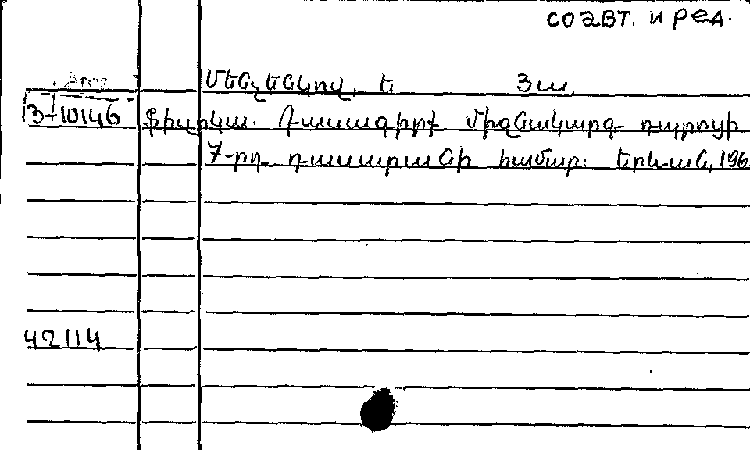 соавт. и ред.
Մենչենկով, Ե. Յա.
3-10146 Ֆիզիկա. Դասագիրք միջնակարգ դպրոցի
7-րդ դասարանի համար. Երևան, 196
42114